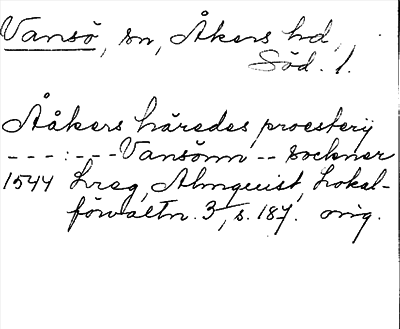 Vansö, sn, Åkers hd,
Söd. l.
Ååkers häredes proesterij
---:--- Vansönn -- sockner
1544 Lreg, Almquist, Lokal-
förvaltn. 3, s. 187. orig.